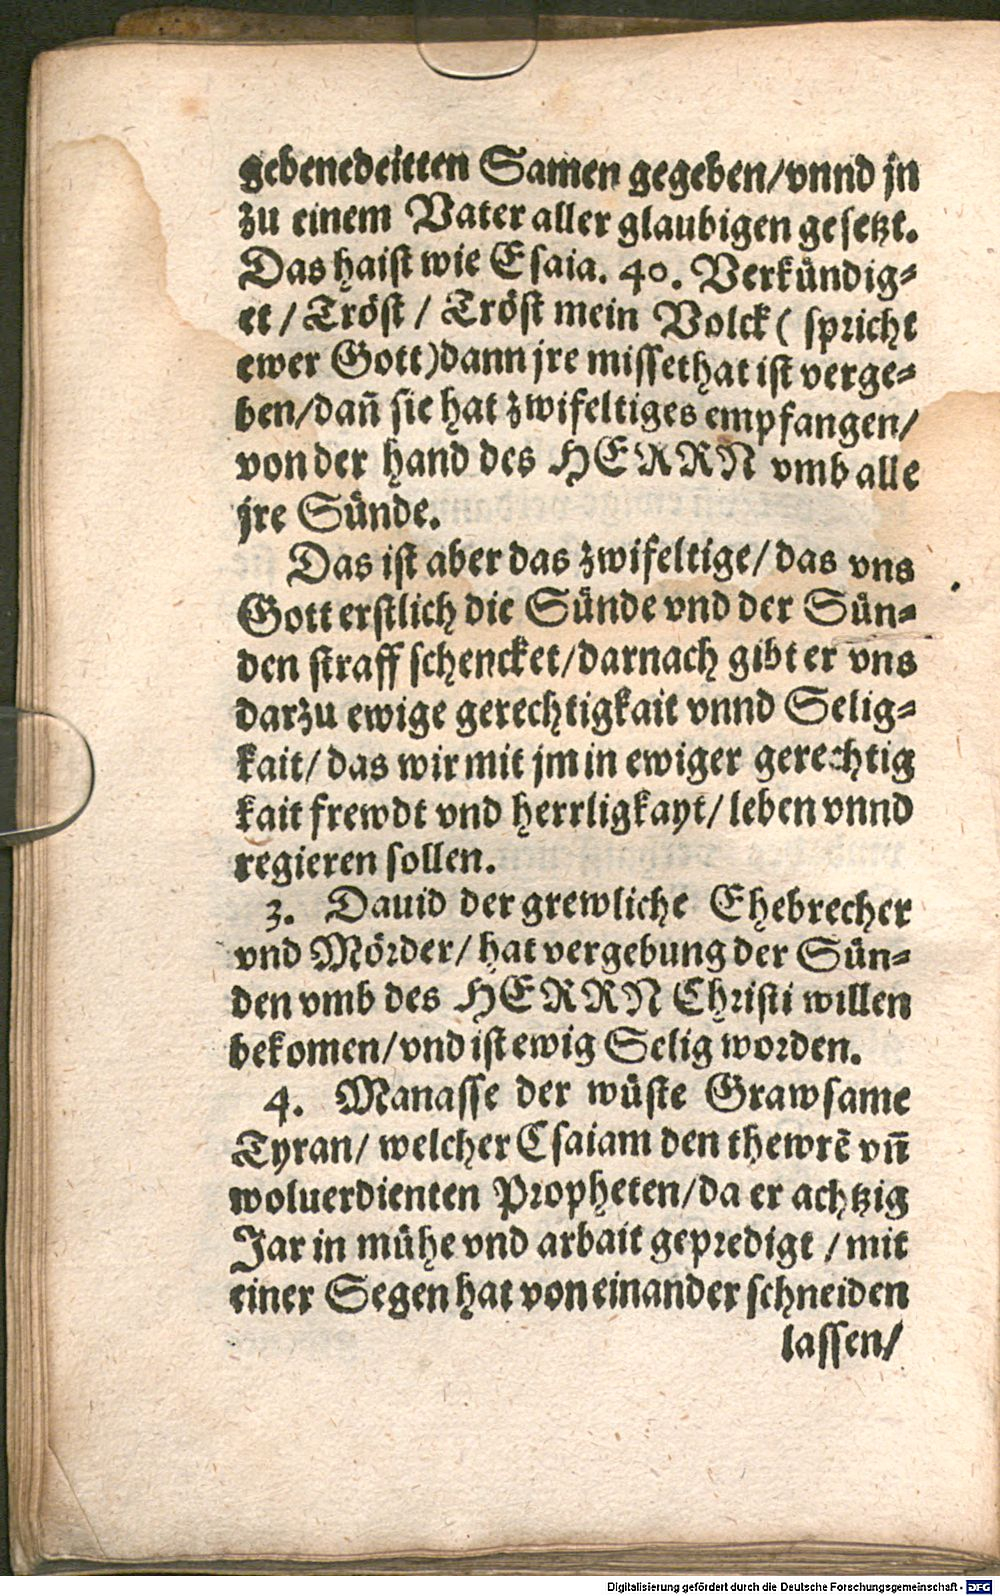 gebenedeitten Samen gegeben/vnnd jn
zu einem Vater aller glaubigen gesetzt.
Das haist wie Esaia. 40. Verkündig-
et / Tröst / Tröst mein Volck ( spricht
ewer Gott)dann jre missethat ist verge-
ben/dañ sie hat zwifeltiges empfangen/
von der hand des HERRN vmb alle
jre Sünde.
Das ist aber das zwifeltige/ das vns
Gott erstlich die Sünde vnd der Sün-
den straff schencket/darnach gibt er vns
darzu ewige gerechtigkait vnnd Selig-
kait/ das wir mit jm in ewiger gerechtig
kait frewdt vnd herrligkayt/ leben vnnd
regieren sollen.
3. Dauid der grewliche Ehebrecher
vnd Mörder/ hat vergebung der Sün-
den vmb des HERRN Christi willen
bekomen/vnd ist ewig Selig worden.
4. Manasse der wüste Grawsame
Tyran/ welcher Esaiam den thewrẽ vñ
woluerdienten Propheten/da er achtzig
Jar in mühe vnd arbait gepredigt / mit
einer Segen hat von einander schneiden
lassen/
Digitalisierung gefördert durch die Deutsche Forschungsgemeinschaft - DFG